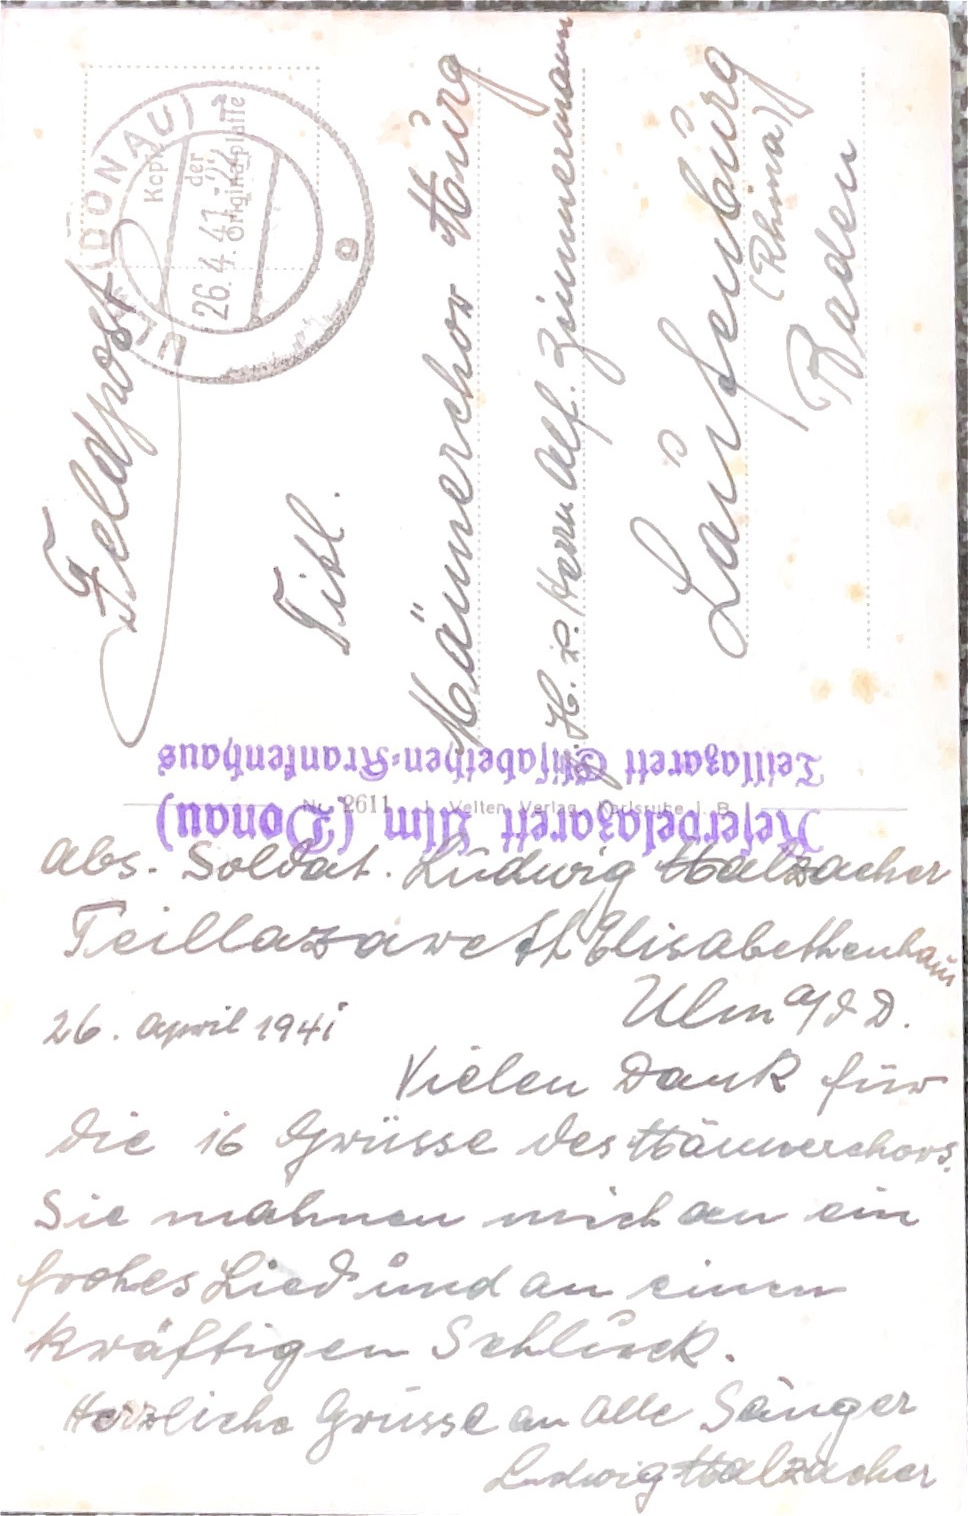 Feldpost
ULM (DONAU)
26.4.41.-22
e
Kopie
der
Originalplatte
Titl.
Männerchor Hurg
z. H. Herrn Alf. Zimmermann
Laufenburg
(Rhina)
Baden
Reservelazarett Ulm (Donau)
Teillazarett Elisabethen-Krankenhaus
Nr. 2611 J. Velten, Verlag, Karlsruhe i. B.
Abs. Soldat. Ludwig Malzacher
Teillazarett Elisabethenhaus
Ulm a/d D.
26. April 1941
Vielen Dank für
die 16 Grüsse des Männerchors.
Sie mahnen mich an ein
frohes Lied und an einen
kräftigen Schluck.
Herzliche Grüsse an alle Sänger
Ludwig Malzacher